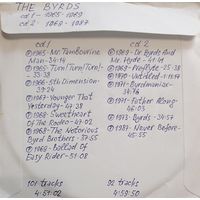 THE BYRDS
cd 1 - 1965-1969
cd 2 - 1969-1987
cd 1
1965-Mr. Tambourine
Man-34:14
1965-Turn! Turn! Turn!-
33:38
1966-5th Dimension-
37:24
1967-Younger That
Yesterday-47:38
1968-Sweetheart
Of The Rodeo-47:02
1968-The Notorious
Byrd Brothers-57:55
1969-Ballad Of
Easy Rider-51:08
101 tracks
4:57:02
cd 2
1969-Dr. Byrds And
Mr. Hyde-41:14
1969-Preflyte-25:38
1970-Untitled-1:11:17
1971-Byrdmaniax-
47:36
1971-Farther Along-
46:03
1973-Byrds-34:57
1987-Never Before-
45:55
92 tracks
4:59:50